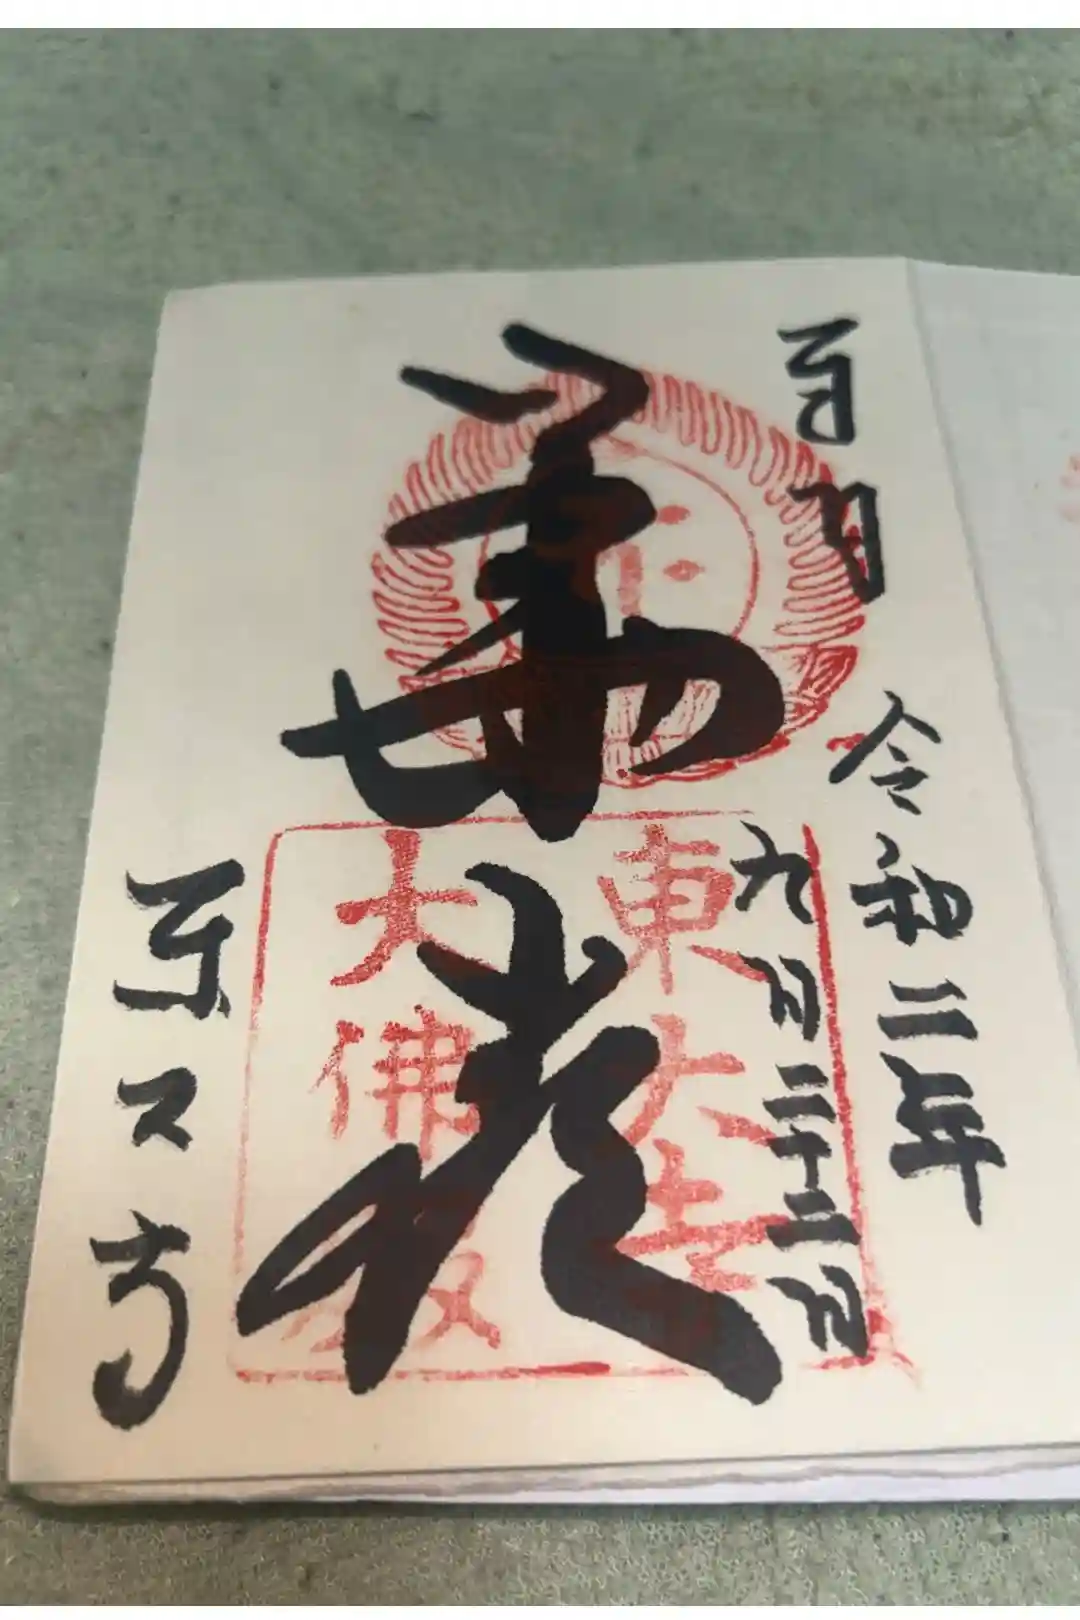 令和二年
九月二十二日
華厳
東大寺
大佛殿
東大寺